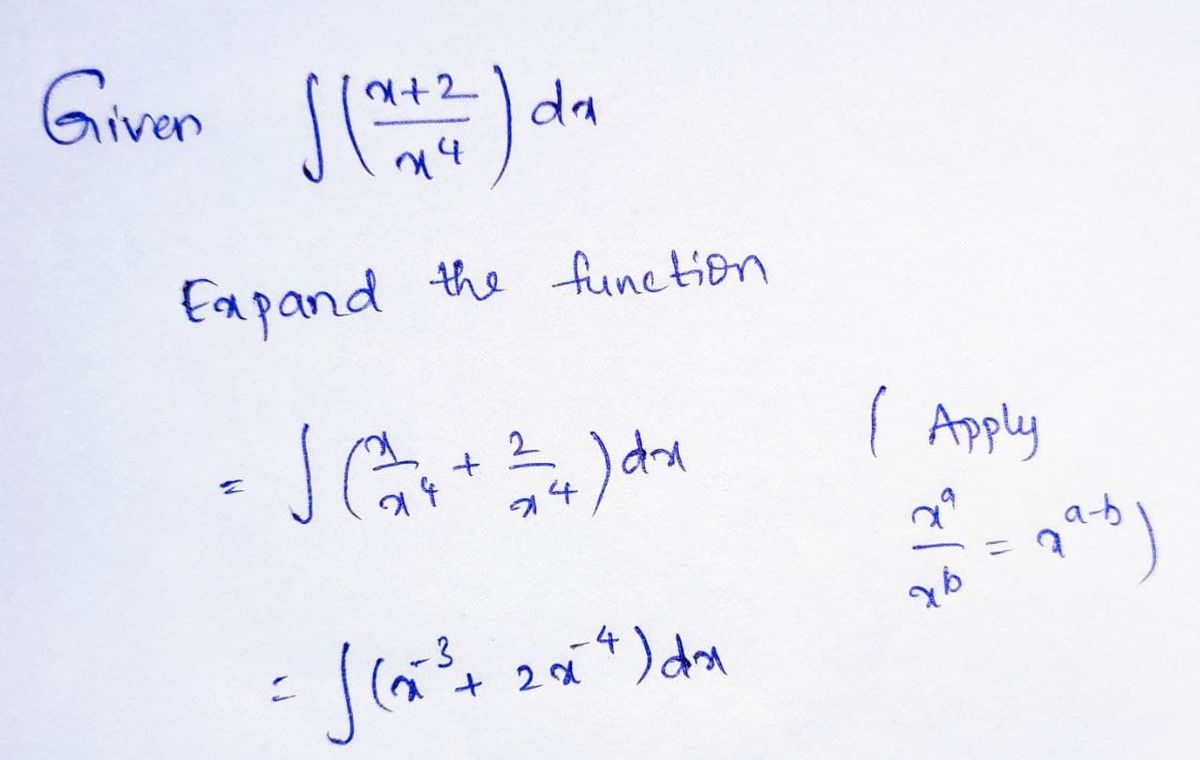 Given ∫((x+2)/x⁴) dx
Expand the function
= ∫(x/x⁴ + 2/x⁴) dx (Apply xᵃ/xᵇ = xᵃ⁻ᵇ)
= ∫(x⁻³ + 2x⁻⁴) dx